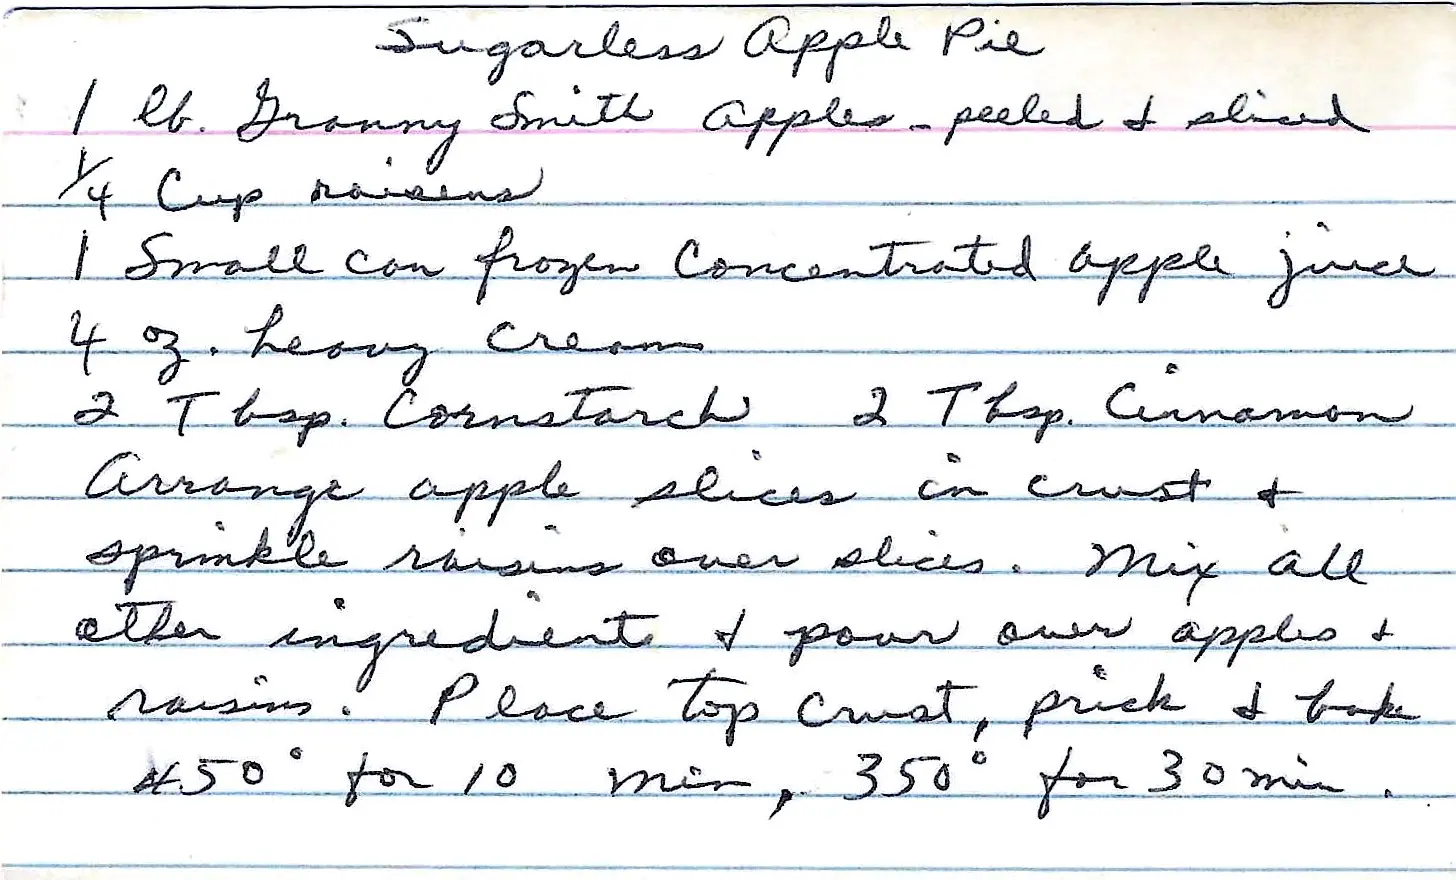 Sugarless Apple Pie
1 lb. Granny Smith apples - peeled & sliced
1/4 Cup raisens
1 Small can frozen Concentrated apple juice
4 oz. heavy cream
2 Tbsp. Cornstarch 2 Tbsp. Cinnamon
Arrange apple slices in crust &
sprinkle raisins over slices. Mix all
other ingredients & pour over apples &
raisins. Place top crust, prick & bake
450° for 10 min, 350° for 30 min.